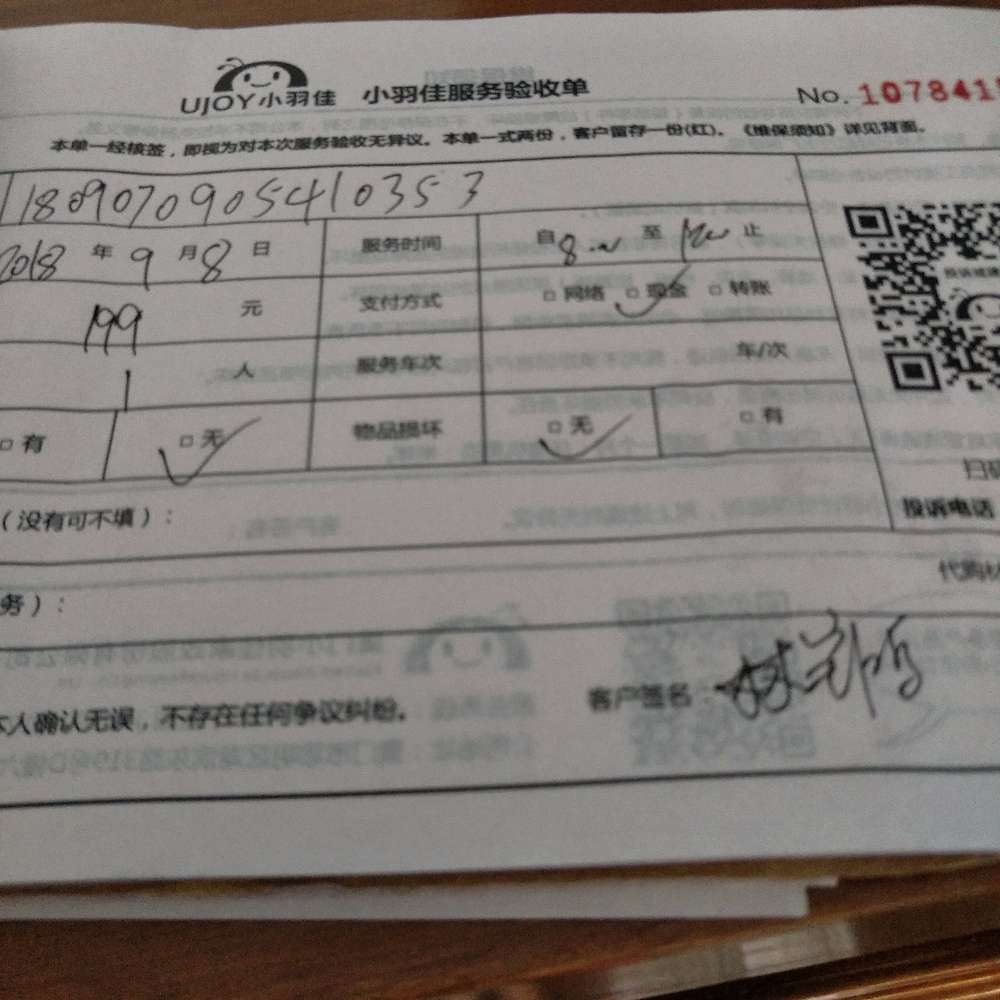 UJOY小羽佳 小羽佳服务验收单 No. 1078411
本单一经核签，即视为对本次服务验收无异议。本单一式两份，客户留存一份(红)。《维保须知》详见背面。
1180907090541 0353
2018 年 9 月 8 日 服务时间 自 8:00 至 止
199 元 支付方式 □ 网络 □ 现金 □ 转账
1 人 服务车次 车/次
□ 有 □ 无 物品损坏 □ 无 □ 有
扫码
（没有可不填）： 投诉电话
代购
务）：
本人确认无误，不存在任何争议纠纷。 客户签名：